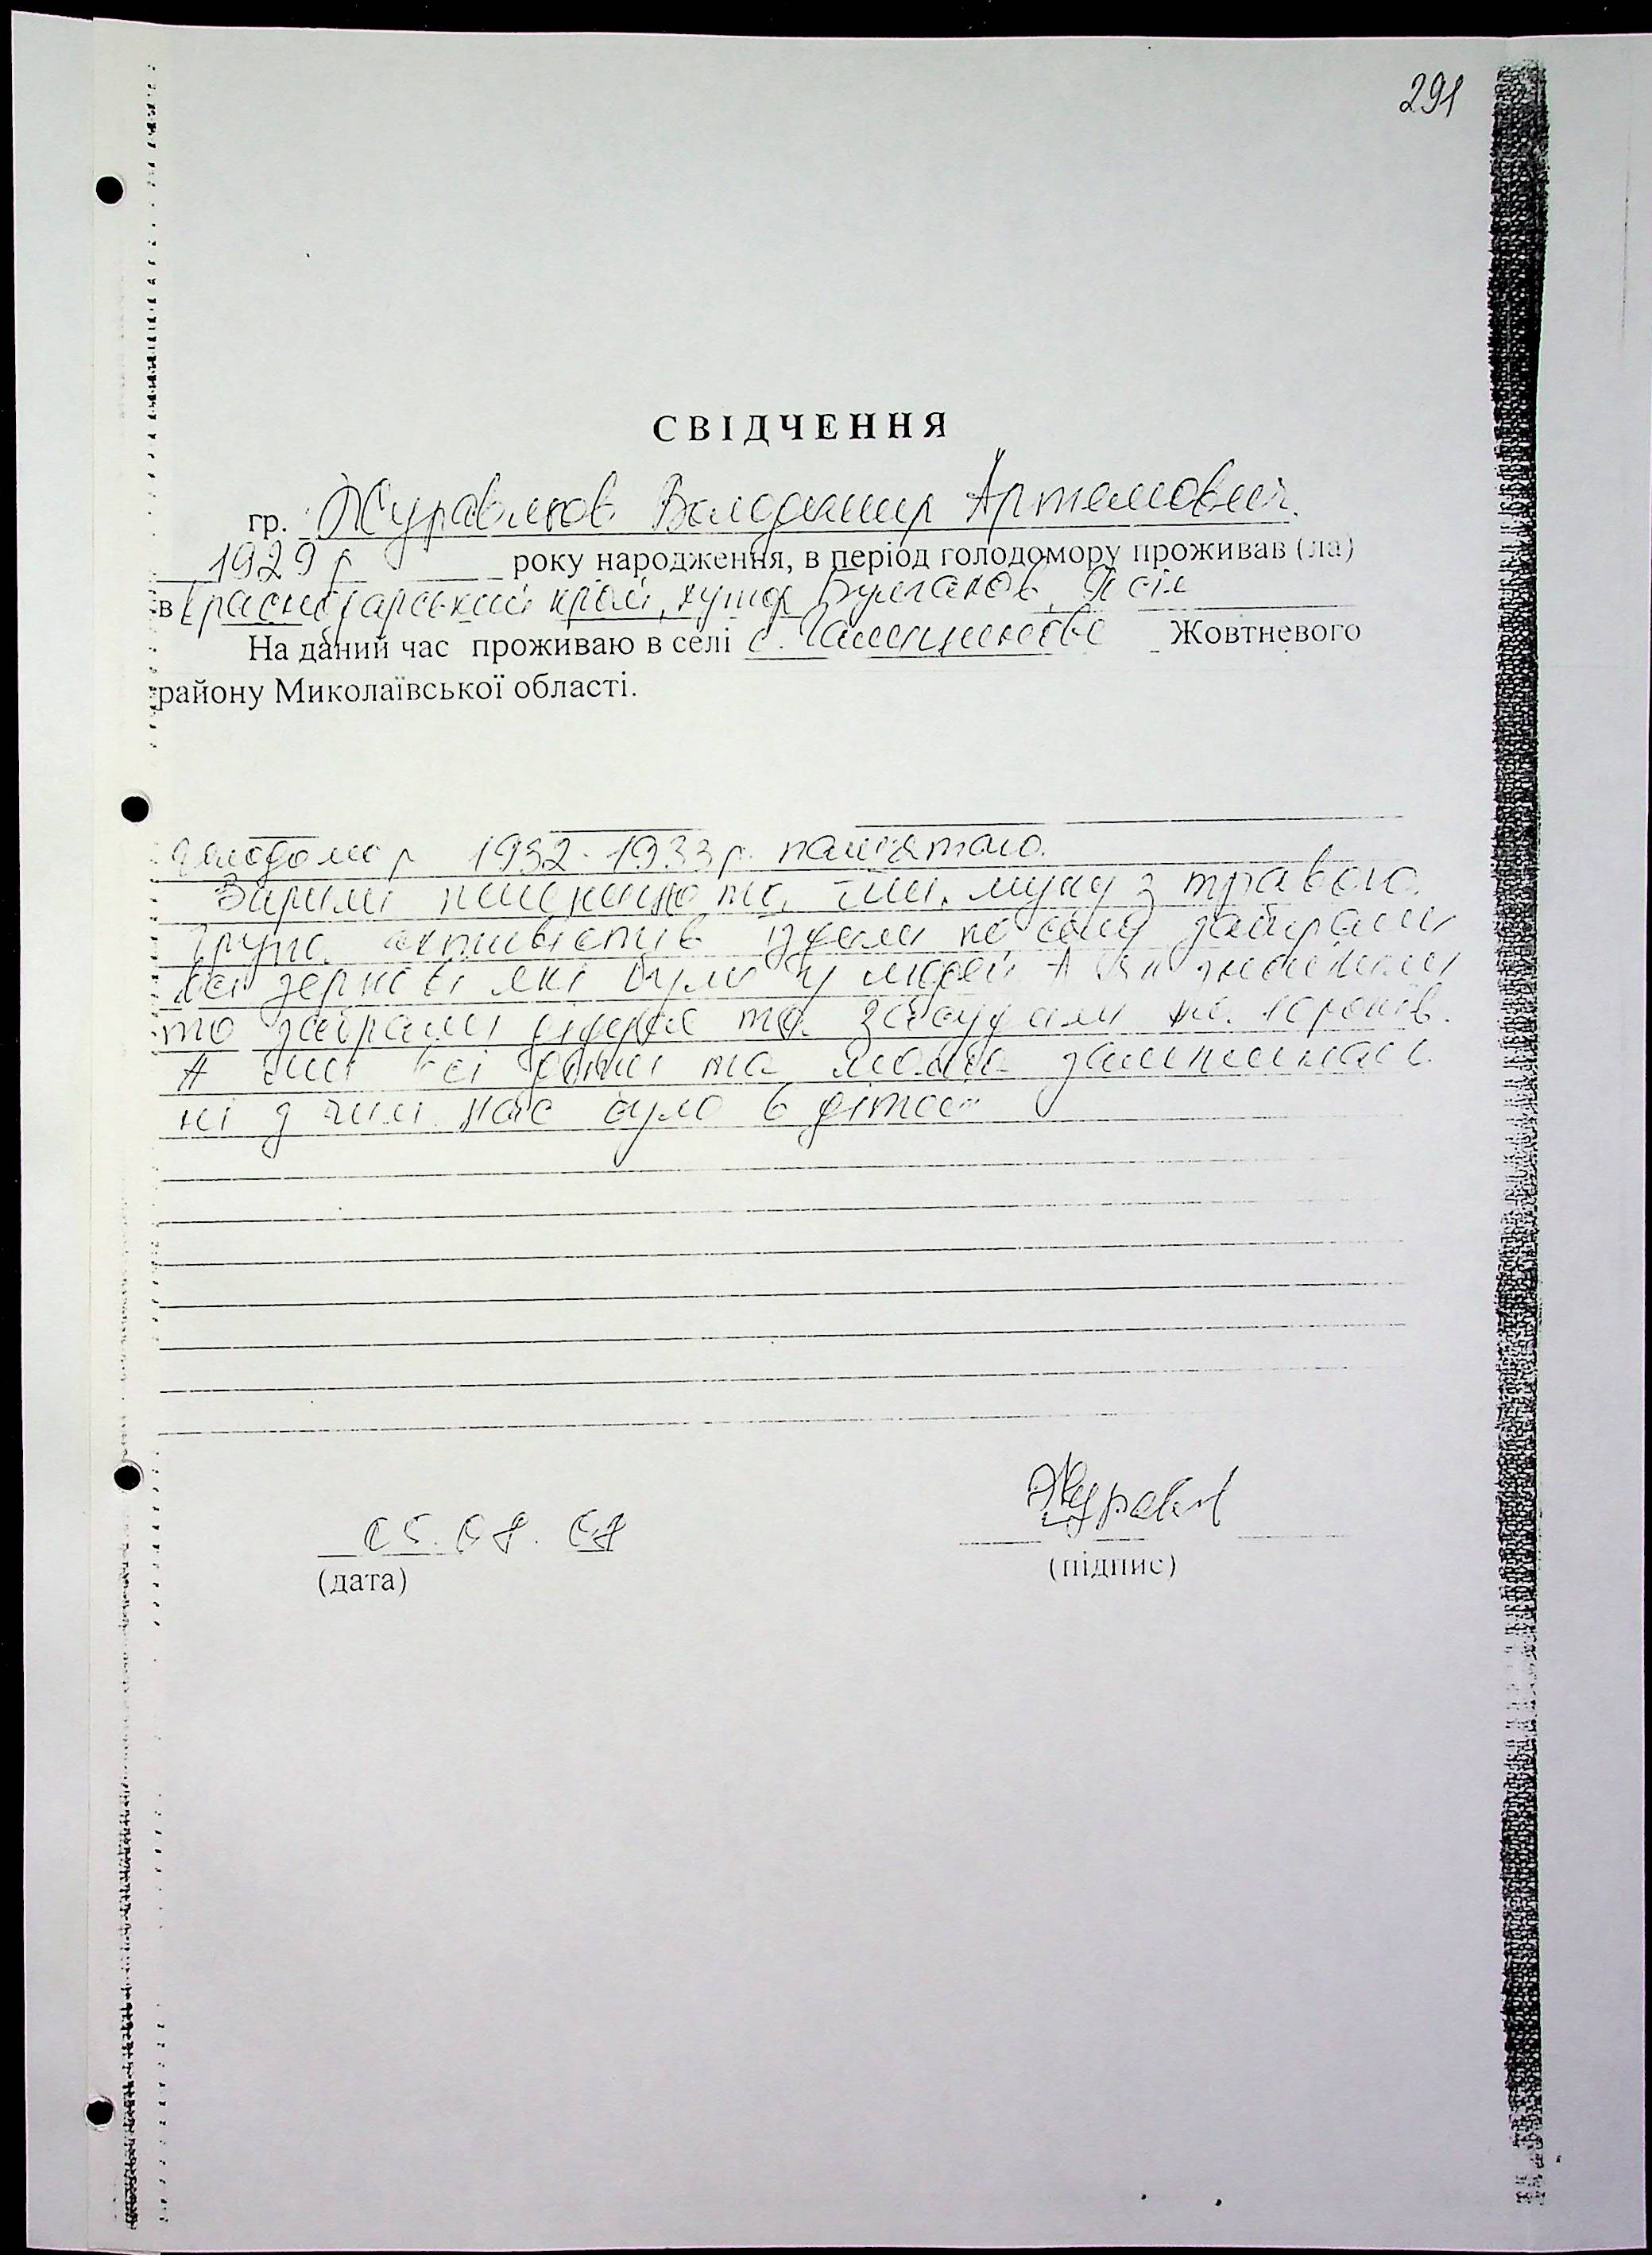 291
СВІДЧЕННЯ
гр. Журавльов Володимир Артемович.
1929 р року народження, в період голодомору проживав (ла)
в Краснодарський край, хутор Булгаков,
На даний час проживаю в селі с. Жовтневого
району Миколаївської області.
Голодомор 1932-1933 р. пам'ятаю.
Варили та їли муку з травою.
Група активістів по селу забирали
всі зернові які були у людей А як знаходили
то забирали та засуджали на 10 років.
А їли всі та
ні з чим нас було 6 дітей
05.08.08
(дата)
Журавл
(підпис)